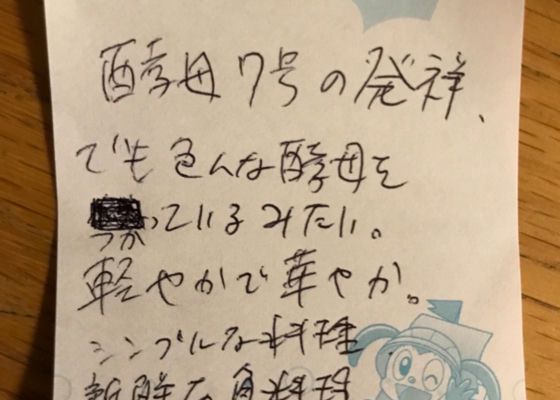 酵母7号の発祥、
でも色んな酵母を
つかっているみたい。
軽やかで華やか。
シンプルな料理
新鮮な魚料理